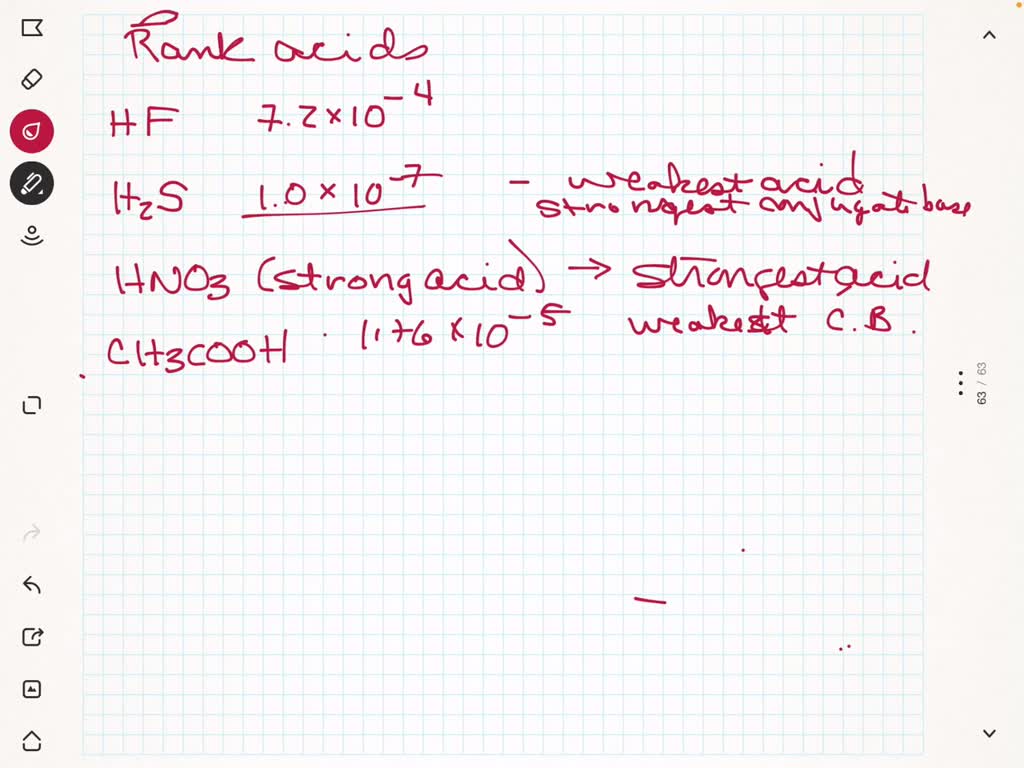 Rank acids
HF 7.2 × 10⁻⁴
H₂S 1.0 × 10⁻⁷ - weakest acid
strongest conjugate base
HNO₃ (strong acid) → strongest acid
weakest C.B.
CH₃COOH × 10⁻⁵
63 / 63